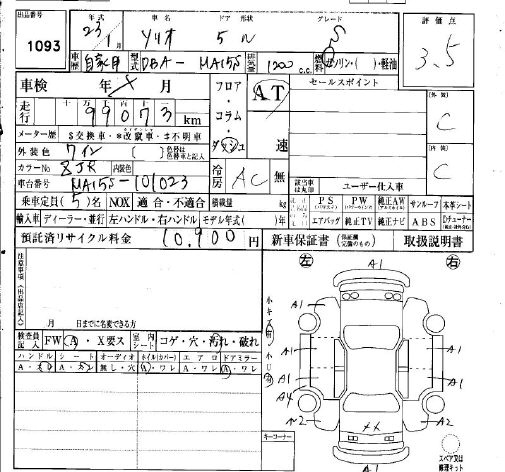 出品番号 1093
年式 23年 1月
車名 ソリオ
ドア 形状 5 W
グレード S
評価点 3.5
車歴 自家用
型式 DBA-MA15S
排気量 1200 c.c.
燃料 ガソリン・軽油
車検 年 月
走行 十万千百十 99073 km
メーター歴 $交換車・*改竄車・#不明車
外装色 ワイン
色替車は元色替車と記入
カラーNo ZJR 内装色
車台番号 MA15S-101023
乗車定員 (5) 名 NOX 適合・不適合 積載量 kg
輸入車 ディーラー・並行 左ハンドル・右ハンドル モデル年式( )年
預託済リサイクル料金 10,900 円
フロア・コラム・ダッシュ
AT 速
冷房 AC 無
セールスポイント
外装 C
内装 C
該当車は丸印
ユーザー仕入車
PS PW 純正AW サンルーフ 本革シート
エアバッグ 純正TV 純正ナビ ABS Dチューナー
新車保証書 取扱説明書
注意事項(出品店記入)
月 日までに名変できる方
検査員記入 FW A・X要ス 室内シート コゲ・穴・汚れ・破れ
ハンドル シート オーディオ ホイル(カバー) エアロ ドアミラー
A・スレ A・スレ 無し・穴 A・ワレ A・ワレ A・ワレ
小キズ有 小凹有
キーコーナー
左 右
A1
A1 A1
A1 A1
A1 A1
A4 A1
A2
XX
A1
スペア又は修理キット